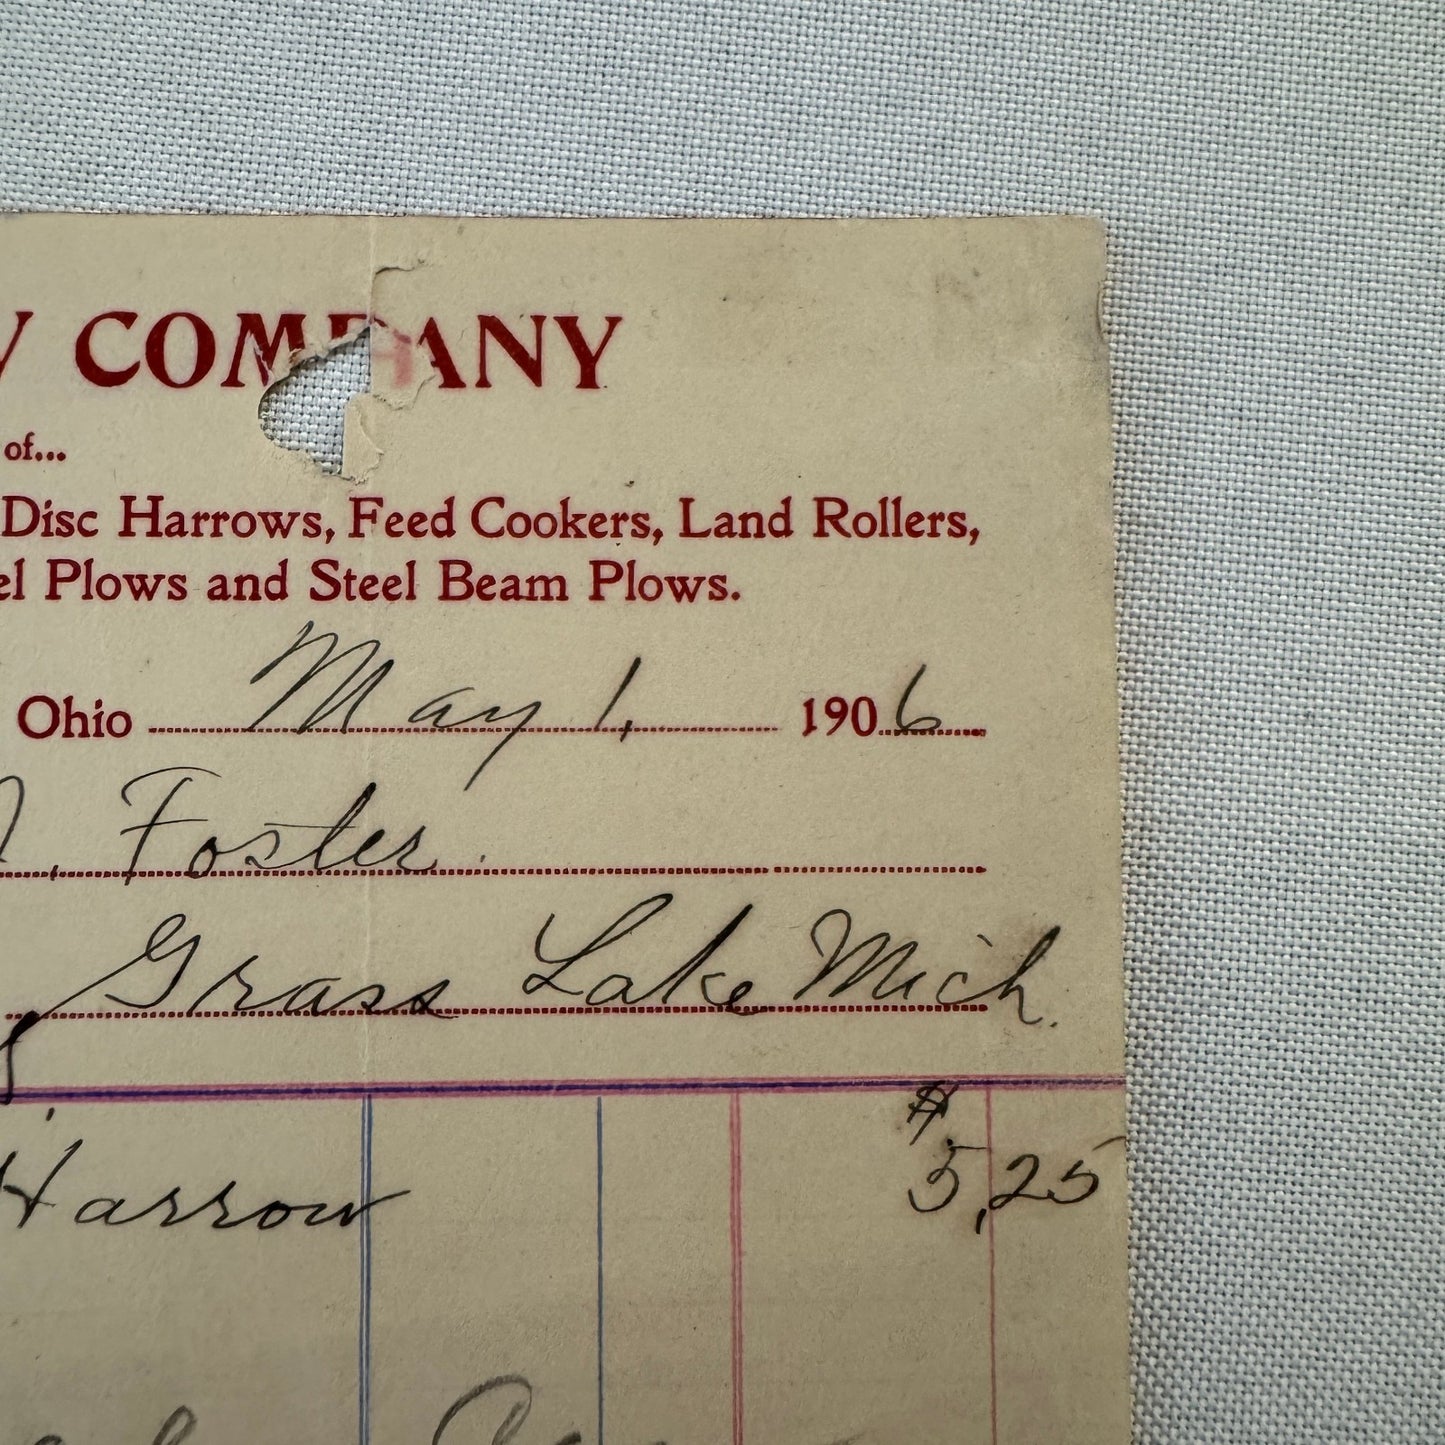 Y COMPANY
of...
Disc Harrows, Feed Cookers, Land Rollers,
el Plows and Steel Beam Plows.
Ohio May 1, 1906
Foster.
Grass Lake Mich.
$
Harrow 5,25